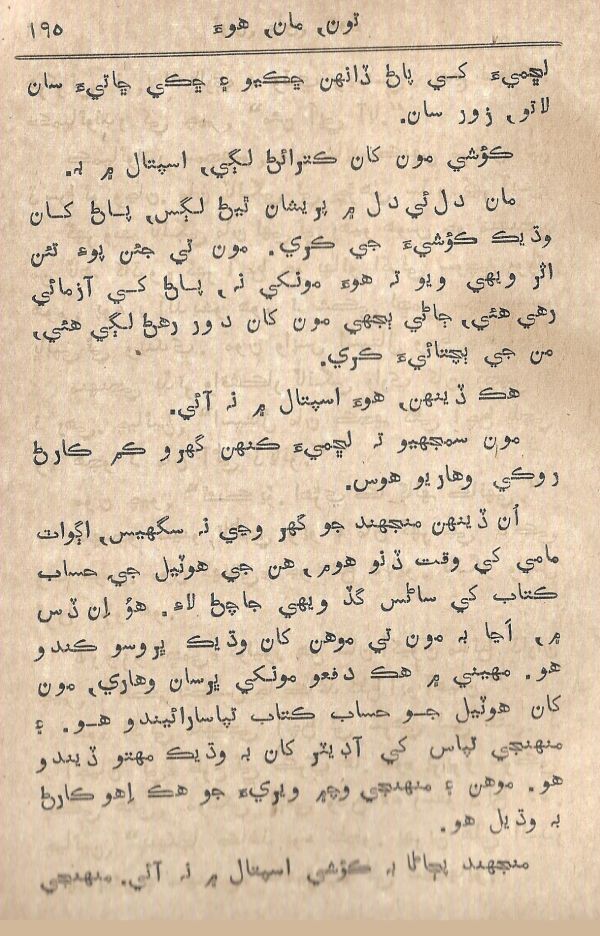 تون, مان, هوءَ ١٩٥
لڇميءَ کسي پاڻ ڏانهن ڇڪيو ۽ ڇڪي ڇاتيءَ سان
لاتو, زور سان.
ڪوُشي مون کان ڪترائڻ لڳي, اسپتال ۾ بہ.
مان دل ئي دل ۾ پريشان ٿيڻ لڳس, پاڻ کان
وڌيڪ ڪوُشيءَ جي ڪري. مون تي جڻن پوءِ ئن
اثر ويهي ويو تہ هوءَ مونکي نہ, پاڻ کسي آزمائي
رهي هئي, ڄاڻي ٻجهي مون کان دور رهڻ لڳي هئي,
من جي پڇتائيءَ ڪري.
هڪ ڏينهن, هوءَ اسپتال ۾ نہ آئي.
مون سمجهيو تہ لڇميءَ ڪنهن گهرو ڪم ڪارڻ
روڪي وهاريو هوس.
اُن ڏينهن منجهند جو گهر وڃي نہ سگهيس, اڳواٽ
مامي کي وقت ڏنو هوم, هن جي هوٽيل جي حساب
ڪتاب کي ساڻس گڏ ويهي جاچڻ لاءِ. هوُ اِن ڏس
۾, اَڃا بہ مون تي موهن کان وڌيڪ ڀروسو ڪندو
هو. مهيني ۾ هڪ دفعو مونکي ڀرسان وهاري, مون
کان هوٽيل جو حساب ڪتاب تپاسارائيندو هو. ۽
منهنجي تپاس کي آڊيٽر کان بہ وڌيڪ مهتو ڏيندو
هو. موهن ۽ منهنجي وچ۾ ويريءَ جو هڪ اِهو ڪارڻ
بہ وڌيل هو.
منجهند پڄاڻا بہ ڪوُشي اسپتال ۾ نہ آئي. منهنجي